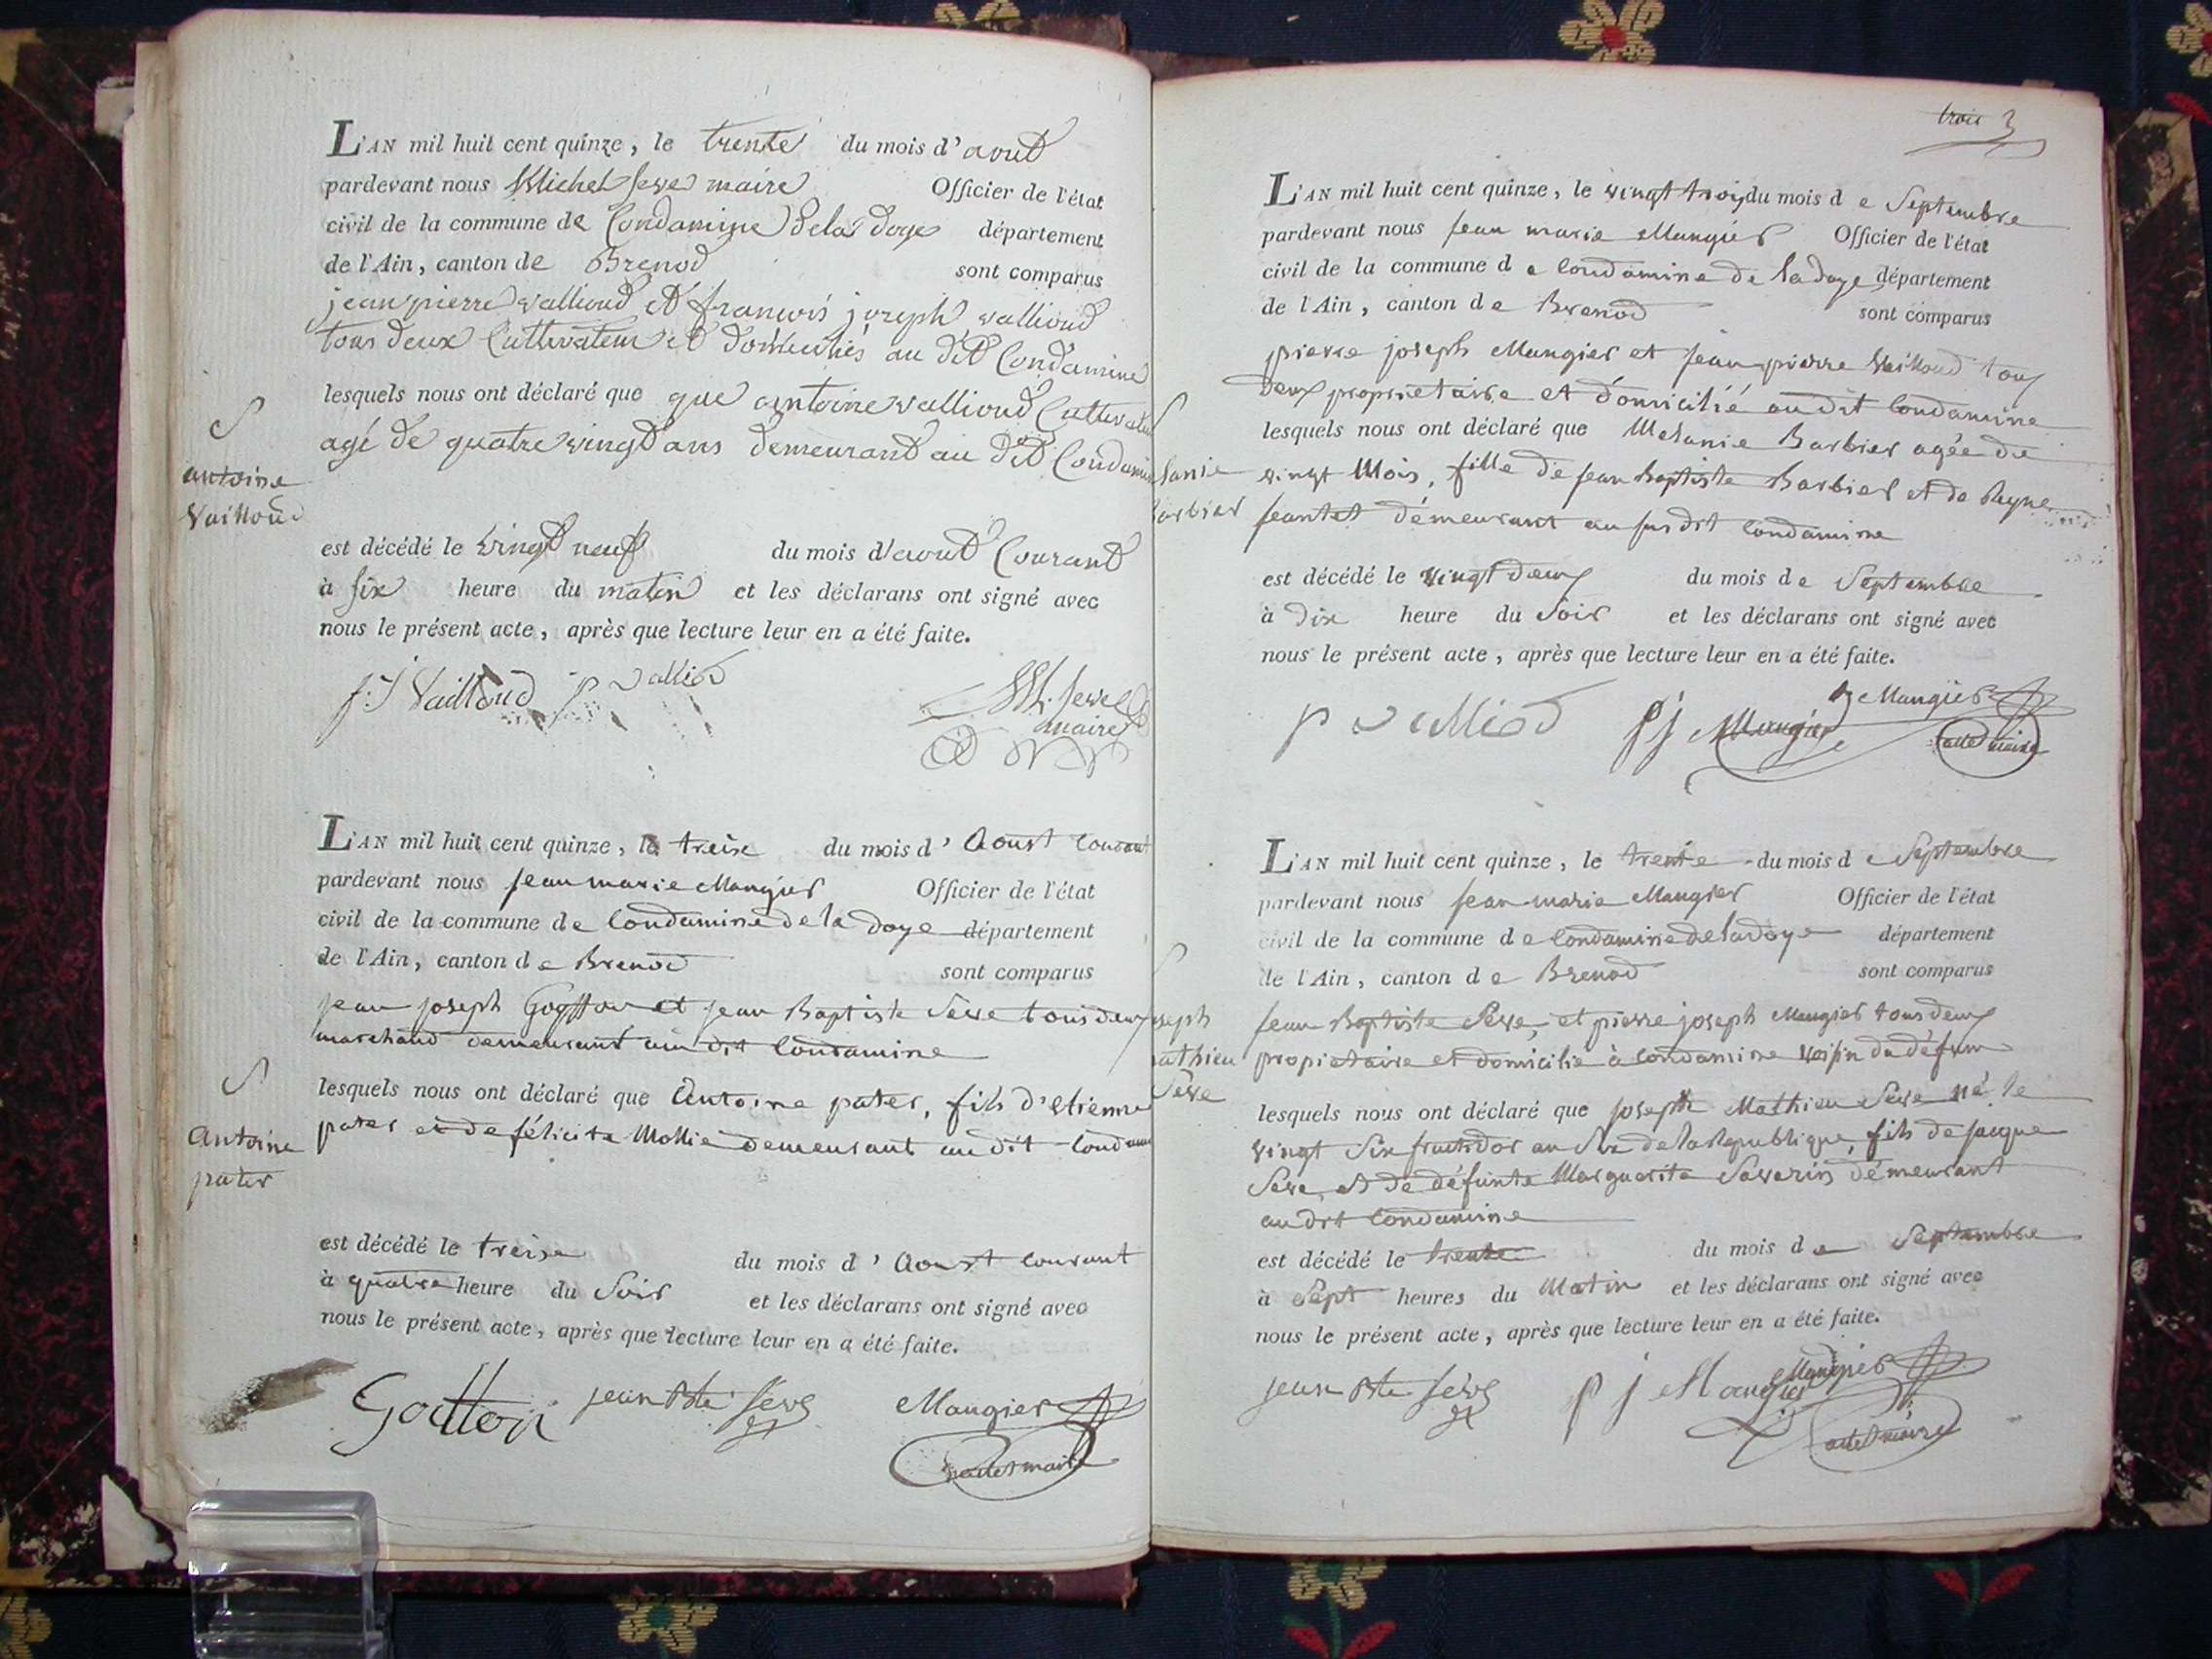 L'AN mil huit cent quinze, le trente du mois d'aout
pardevant nous Michel Seve maire Officier de l'état
civil de la commune de Condamine de la doye département
de l'Ain, canton de Brenod sont comparus
jean pierre vallioud et francois joseph vallioud
tous deux Cultivateur et domicilies au dit Condamine
lesquels nous ont déclaré que que antoine vallioud Cultivateu
agé de quatre vingt ans demeurant au dit Condamine
S
antoine
Vailloud
est décédé le vingt neuf du mois d'aout Courant
à six heure du matin et les déclarans ont signé avec
nous le présent acte, après que lecture leur en a été faite.
f. J Vailloud p valliod M. Seve
maire
L'AN mil huit cent quinze, le treize du mois d' Aoust Courant
pardevant nous Jean marie Maugier Officier de l'état
civil de la commune de Condamine de la doye département
de l'Ain, canton de Brenod sont comparus
jean joseph et jean Baptiste Seve tous deux
marchand demeurant au dit Condamine
lesquels nous ont déclaré que Antoine pater, fils d'etienne
pater et de félicité Mollie demeurant au dit Condamine
S
Antoine
pater
est décédé le treize du mois d' Aoust Courant
à quatre heure du Soir et les déclarans ont signé avec
nous le présent acte, après que lecture leur en a été faite.
Goitton jean Bte Seve Maugier
trois 3
L'AN mil huit cent quinze, le vingt trois du mois de Septembre
pardevant nous Jean marie Maugier Officier de l'état
civil de la commune de Condamine de la doye département
de l'Ain, canton de Brenod sont comparus
pierre joseph Maugier et Jean pierre Vailloud tous
deux proprietaire et domicilié au dit Condamine
lesquels nous ont déclaré que Melanie Barbier agée de
vingt Mois, fille de Jean Baptiste Barbier et de Reyne
Jeantet démeurant au susdit Condamine
lanie
arbier
est décédé le vingt deux du mois de Septembre
à dix heure du Soir et les déclarans ont signé avec
nous le présent acte, après que lecture leur en a été faite.
p vallliod p j Maugier Maugier
L'AN mil huit cent quinze, le trente du mois de Septembre
pardevant nous Jean marie Maugier Officier de l'état
civil de la commune de Condamine de la doye département
de l'Ain, canton de Brenod sont comparus
Jean Baptiste Seve, et pierre joseph Maugier tous deux
propietaire et domicilié à Condamine voisin du défunt
lesquels nous ont déclaré que joseph Mathieu Seve né le
vingt Six fructidor an Six de la Republique, fils de jacque
Seve et de défunte Marguerite Savarin démeurant
au dit Condamine
oseph
athieu
Sève
est décédé le trente du mois de Septembre
à Sept heures du Matin et les déclarans ont signé avec
nous le présent acte, après que lecture leur en a été faite.
jean Bte Seve p j Maugier Maugier